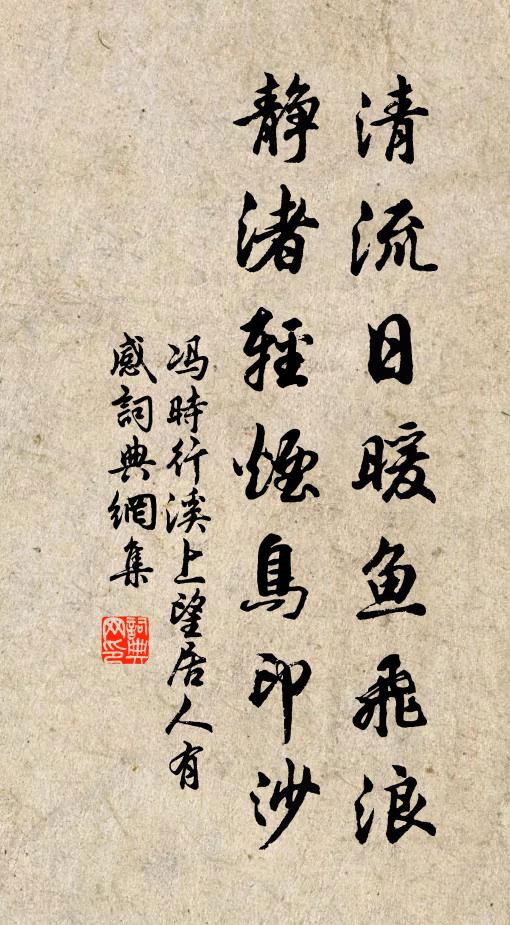 清流日暖鱼飛浪
静渚輕煙鳥印沙
冯時行溪上望居人有
感詞典網集
詞典
网印